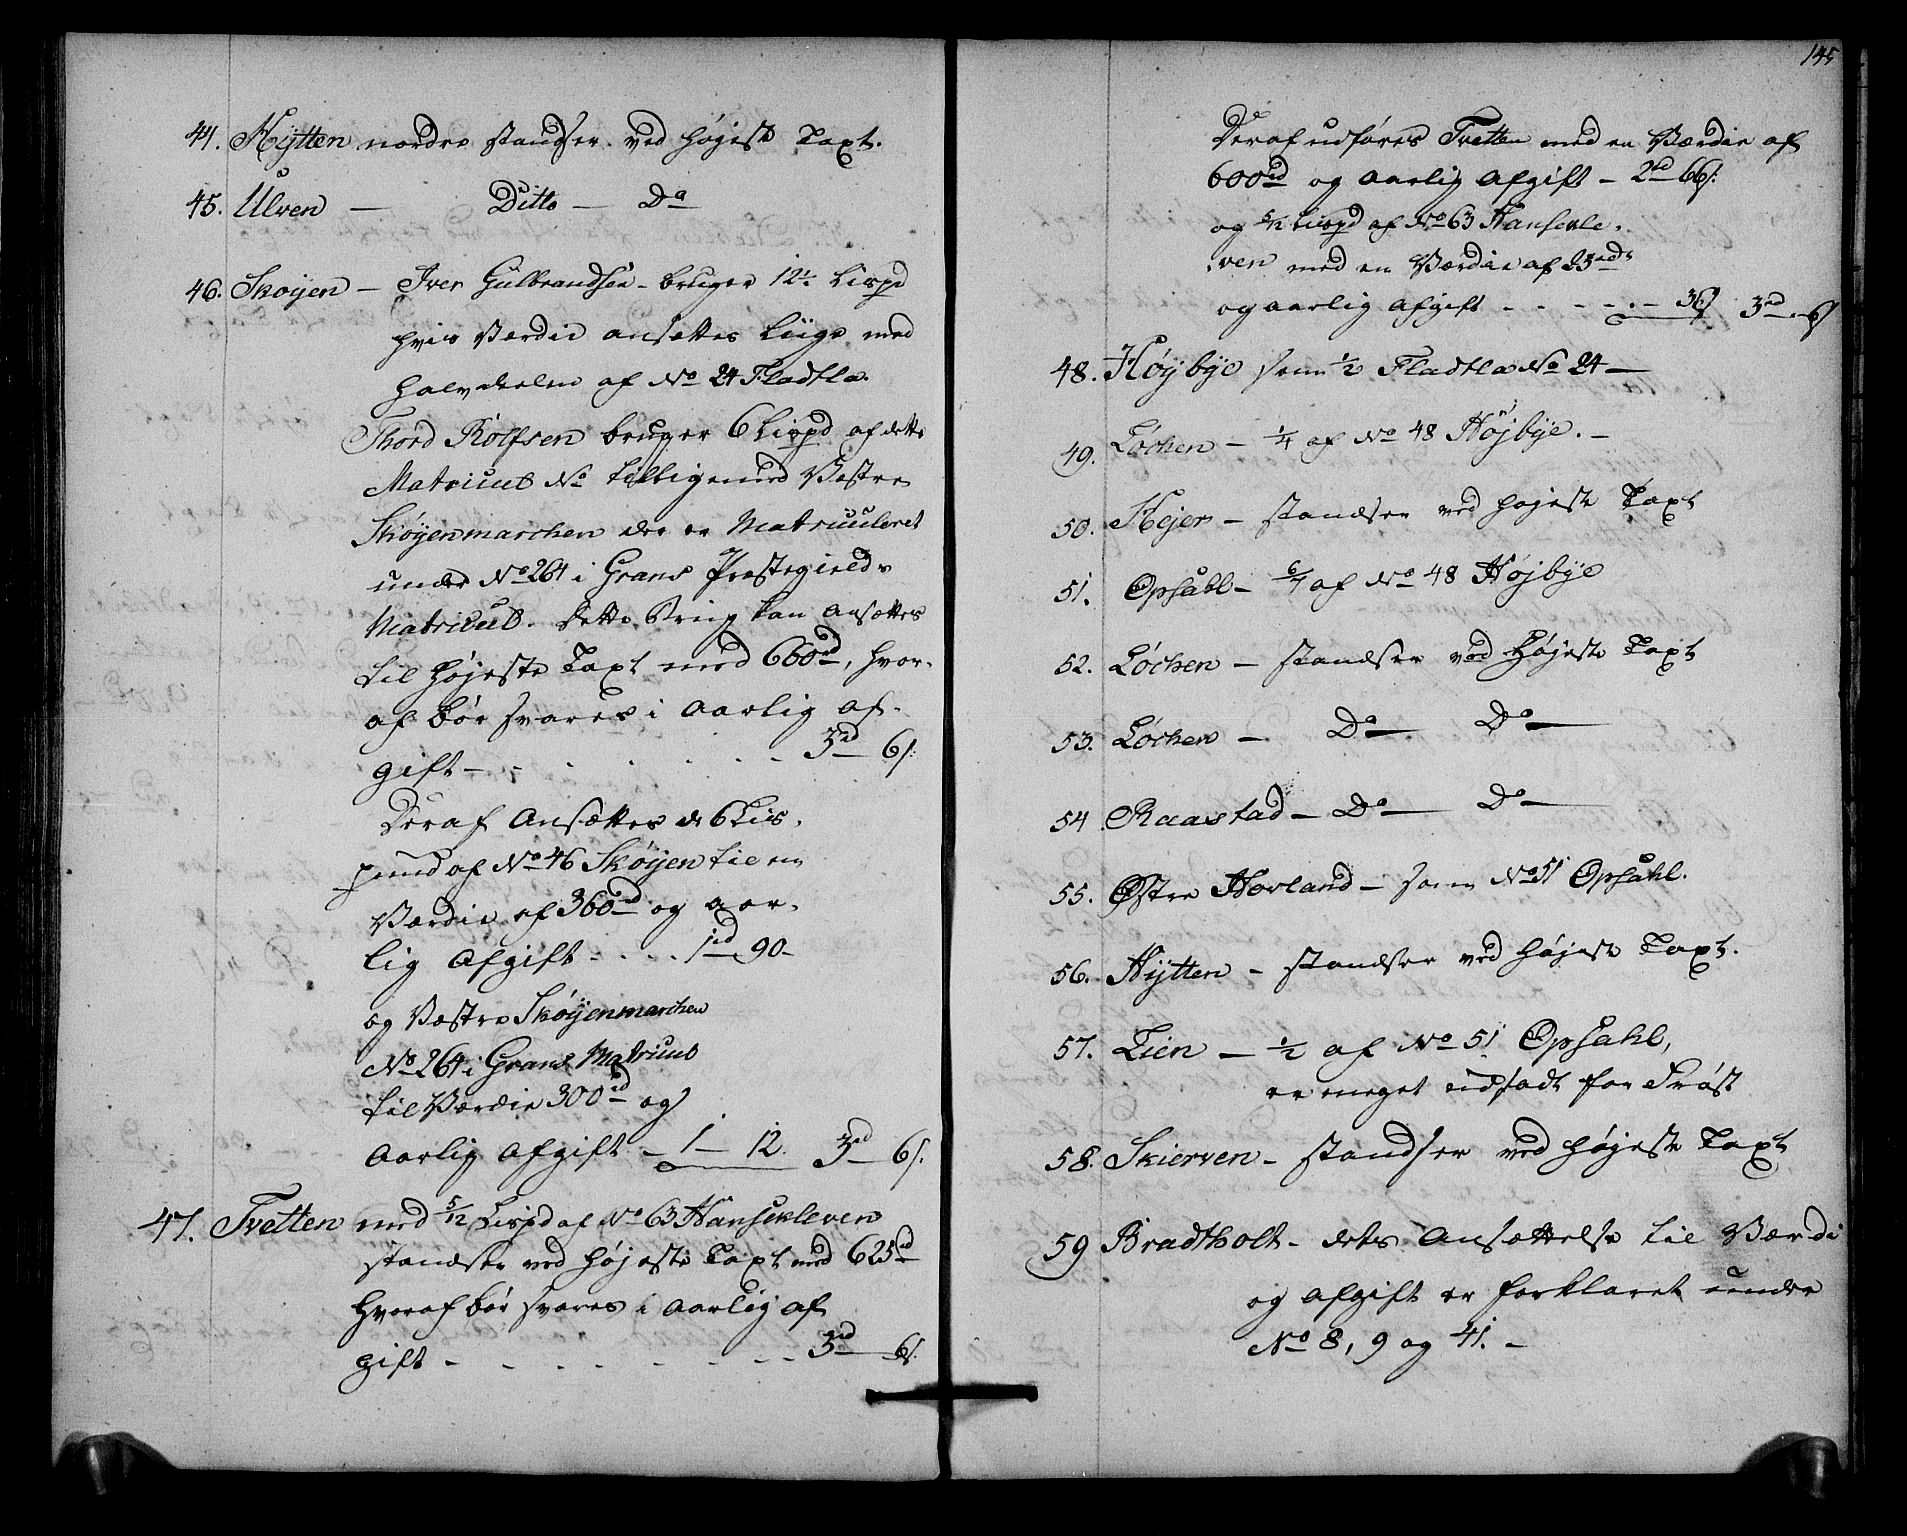 44. Hÿtten nordre standser ved højeste Taxt.
45. Ulven — Ditto — Do
46. Skøÿen — Iver Gulbrandsen - bruger 12½ Lispd
hvis Værdie ansettes Liige med
halvdeelen af No 24 Fladtla.
Thord Rolfsen bruger 6 Lispd af dette
Matricul No tilligemed Vestre
Skøÿenmarchen der er Matriculeret
under No 264 i Grans Præstegields
Matricul. dette Brug kan ansættes
til højeste Taxt med 660 rd, hvor-
af bør svares i Aarlig af-
gift - - - - - - - 3 rd 6 s.
Deraf Ansættes de 6 Lis-
pund af No 46 Skøÿen til en
Værdie af 360 rd og aar-
lig Afgift - - - - 1 rd 90 -
og Vestre Skøÿenmarchen
No 264 i Grans Matricul
til Værdie 300 rd og
Aarlig Afgift - 1 — 12. 3 rd 6 s.
47. Tvetten med 5/12 Lispd af No 63 Hansekleven
standser ved højeste Taxt med 625 rd
hvoraf bør svares i Aarlig af
gift - - - - - - - - 3 rd 6 s.
145
Deraf udføres Tvetten med en Værdie af
600 rd og Aarlig Afgift - 2 rd 66 s.
og 5/12 Lispd af No 63 Hansekle-
-ven med en Værdie af 25 rd
og aarlig Afgift - - - - - - 36 s 3 rd 6 s
48. Høÿbÿe som ½ Fladtla No 24 —
49. Løchen - ¼ af No 48 Højbÿe. -
50. Hejer - standser ved højeste Taxt
51. Opsahl - 6/4 af No 48 Højbÿe
52. Løchen - standser ved Højeste Taxt
53. Løchen — Do — Do —
54. Raastad - Do — Do —
55. Østre Hovland - som No 51 Opsahl.
56. Hÿtten - standser ved højeste Taxt.
57. Lien - ½ af No 51 Opsahl,
er meget udsadt for Frøst
58. Skierven - standser ved højeste Taxt
59 Bradtholt - dets Ansættelse til Værdi
og Afgift er forklaret under
No 8, 9 og 41. -